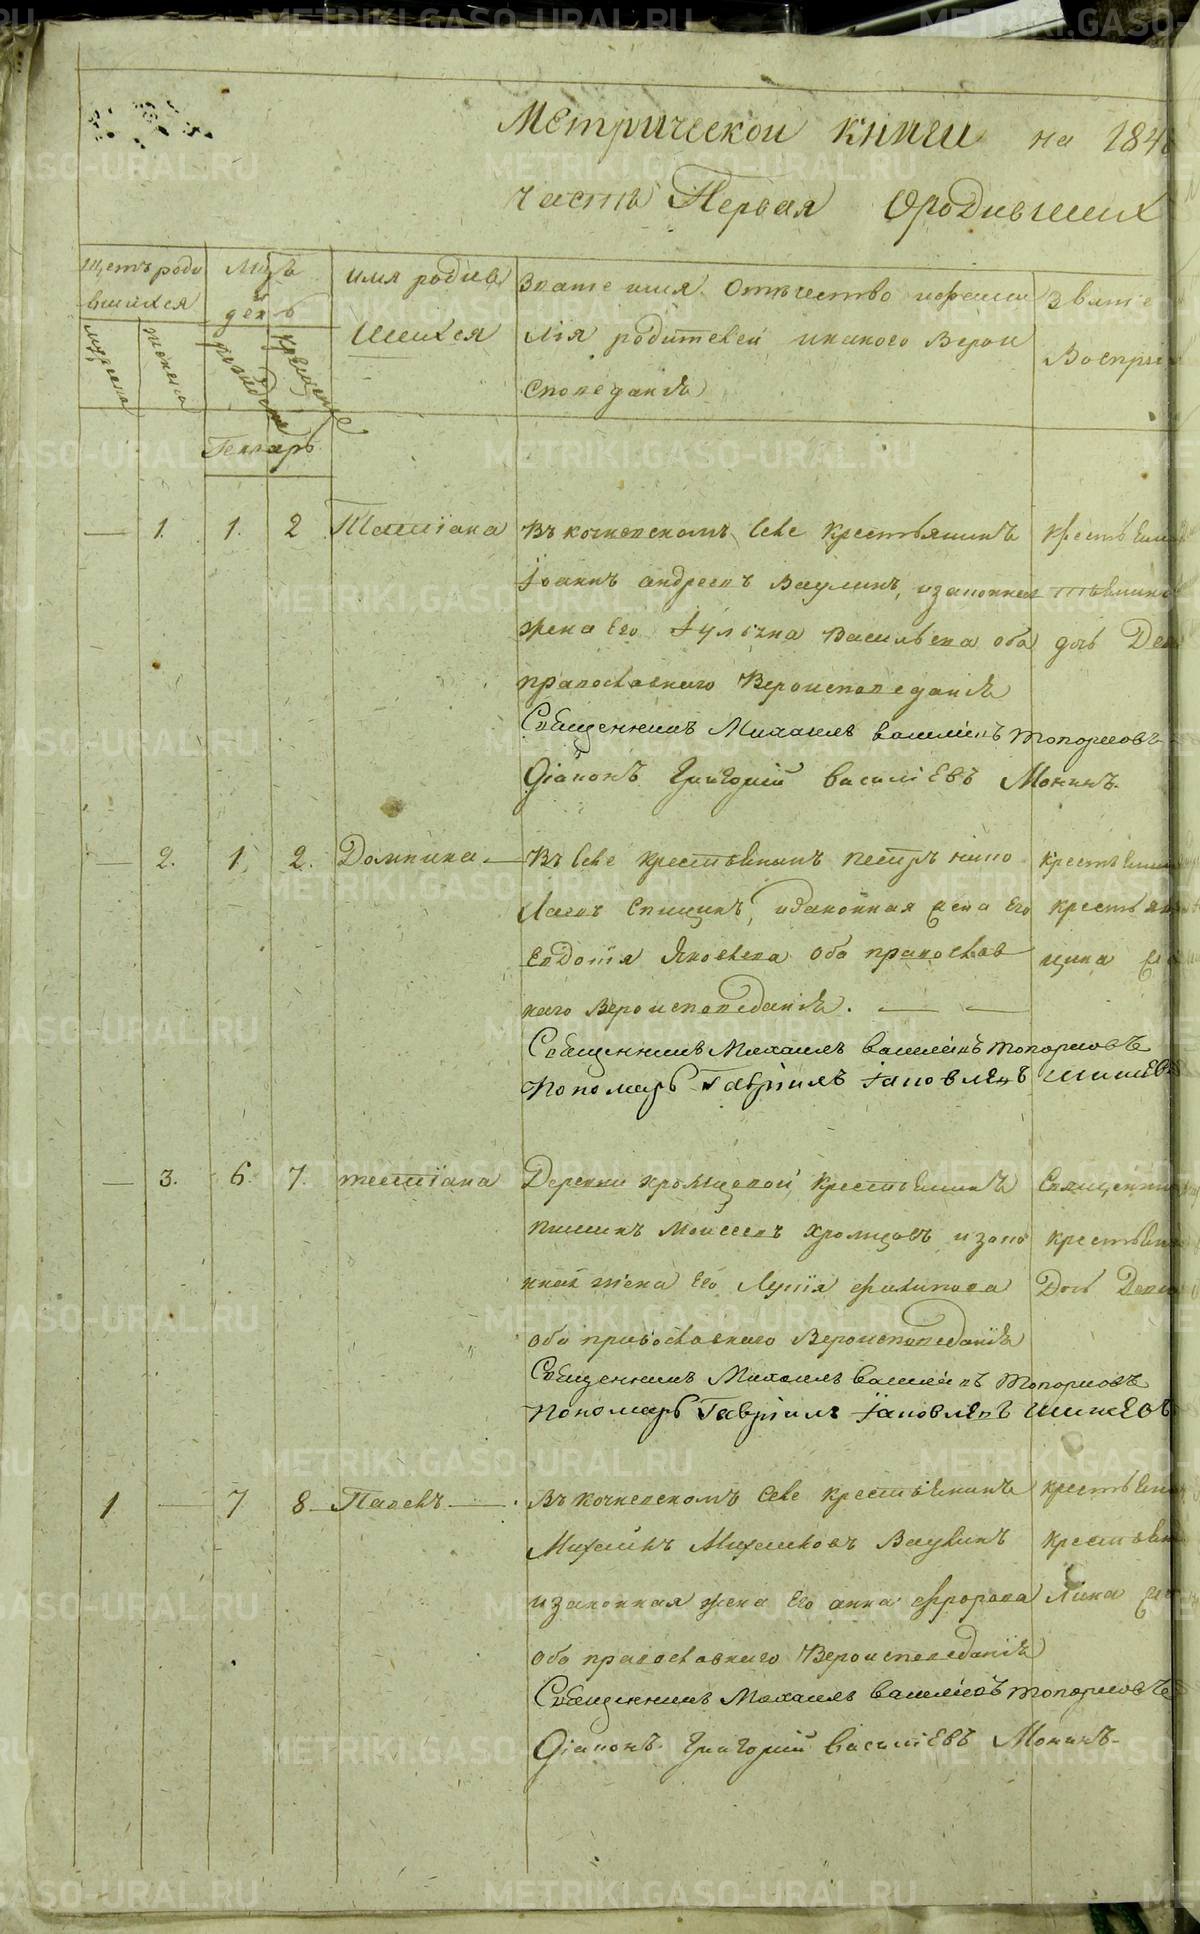 Метрической книги на 184
часть Первая О родившихся
Щетъ роди
вшихся
мужеска
женска
Мцъ
и
день
рождения
крещения
имя родив
шихся
Звание имя Отечество и фами
лия родителей и какого Веро
исповедания
Звание
Воспри
Генварь
— 1. 1. 2 Татиана
Въ кочневскомъ селе крестьянинъ
Iоаннъ андреевъ Ваулинъ, и законная
жена Его Iулиана Васильева оба
православнаго Вероисповедания
Священникъ Михаилъ васильевъ топорковъ
Дiаконъ Григорий василiЕвъ Мокинъ.
крестьянин
дочь
— 2. 1. 2. Домника —
Въ селе крестьянинъ петръ нико
лаевъ Спицинъ, и законная жена Его
Евдокия Яковлева оба православ
наго Вероисповедания. — —
Священникъ Михаилъ васильевъ топорковъ
Пономарь Гавриилъ iаковлевъ шишЕв
крестьянин
крестьян
цина
— 3. 6. 7. татиана
Деревни хромцовой крестьянинъ
Моисеевъ хромцовъ и зако
нная жена Его Лукия филипова
оба православнаго Вероисповедания
Священникъ Михаилъ васильевъ топорковъ
Пономарь Гавриилъ iаковлевъ шишЕвъ
Священни
крестьян
Дочь
1 — 7 8 — Павелъ —
Въ кочневскомъ селе крестьянинъ
Михаилъ Михаиловъ Ваулинъ
и законная жена Его анна
оба православнаго Вероисповедания
Священникъ Михаилъ васильевъ топорковъ
Дiаконъ Григорий василiЕвъ Мокинъ.
крестьян
крестьян
лина
METRIKI.GASO-URAL.RU